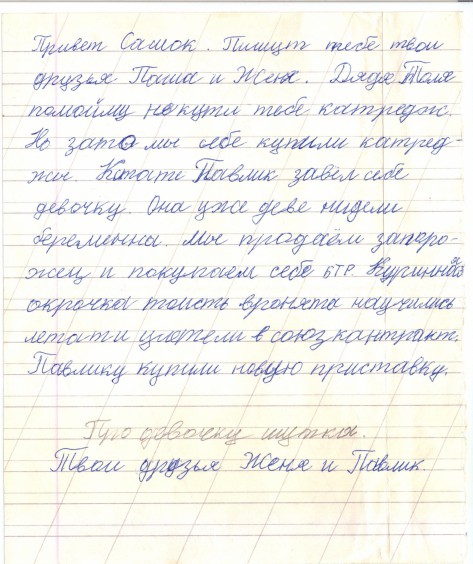 Привет Сашок. Пишут тебе твои
друзья Паша и Женя. Дядя Толя
помойму не купил тебе катредж.
Но зато мы себе купили катред-
жы. Кстате Павлик завёл себе
девочку. Она уже две нидели
беременна. Мы продаём запоро-
жец и покупаем себе БТР.
акрочка тоисть вронята научились
летат и улетели в союз кантракт.
Павлику купили новую приставку.
Про девочку шутка.
Твои друзья Женя и Павлик.